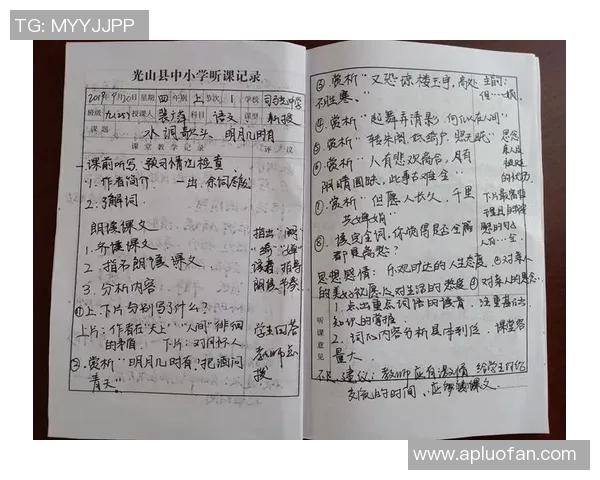 TG: MYYJJPP
光山县中小学听课记录
2019年9月20日 星期四 年级 上 节次 1 学校
班级 九(2)班 授课人 科目 语文 课型 新授
课题 水调歌头 明月几时有
课堂教学记录 评议
课前听写、预习情况检查
1. 作者简介
2. 了解词
朗读课文
1. 齐读课文
2. 指名朗读课文
3. 分析内容
①上、下片分别写了什么?
上片:作者在"天上""人间"徘徊
的矛盾 下片:对月怀人
②. 赏析"明月几时有,把酒问
青天"
指出
读音,指导
学生回答
教师点
拨
③. 赏析"又恐琼楼玉宇,高处
不胜寒。"
④. 赏析"起舞弄清影,何似在人间"
⑤ 赏析"转朱阁,低绮户,照无眠"
⑥ 赏析"人有悲欢离合,月有
阴晴圆缺,此事古难全"
⑦. 赏析"但愿人长久,千里
共婵娟"
⑧. 读完全词,你觉得是否全篇
都是离愁?
思想感情: 乐观旷达的人生态度 ②对亲人
的美好祝愿及对生活的热爱 ④对亲人的思念
听课意见
1. 点出重点词语的读音,注重基础
知识的掌握
2. 词的内容分析具体到位,课堂容
量大。
建议:教师应有激情 给学生时给
交流的时间、应多读课文
www.apluofan.com